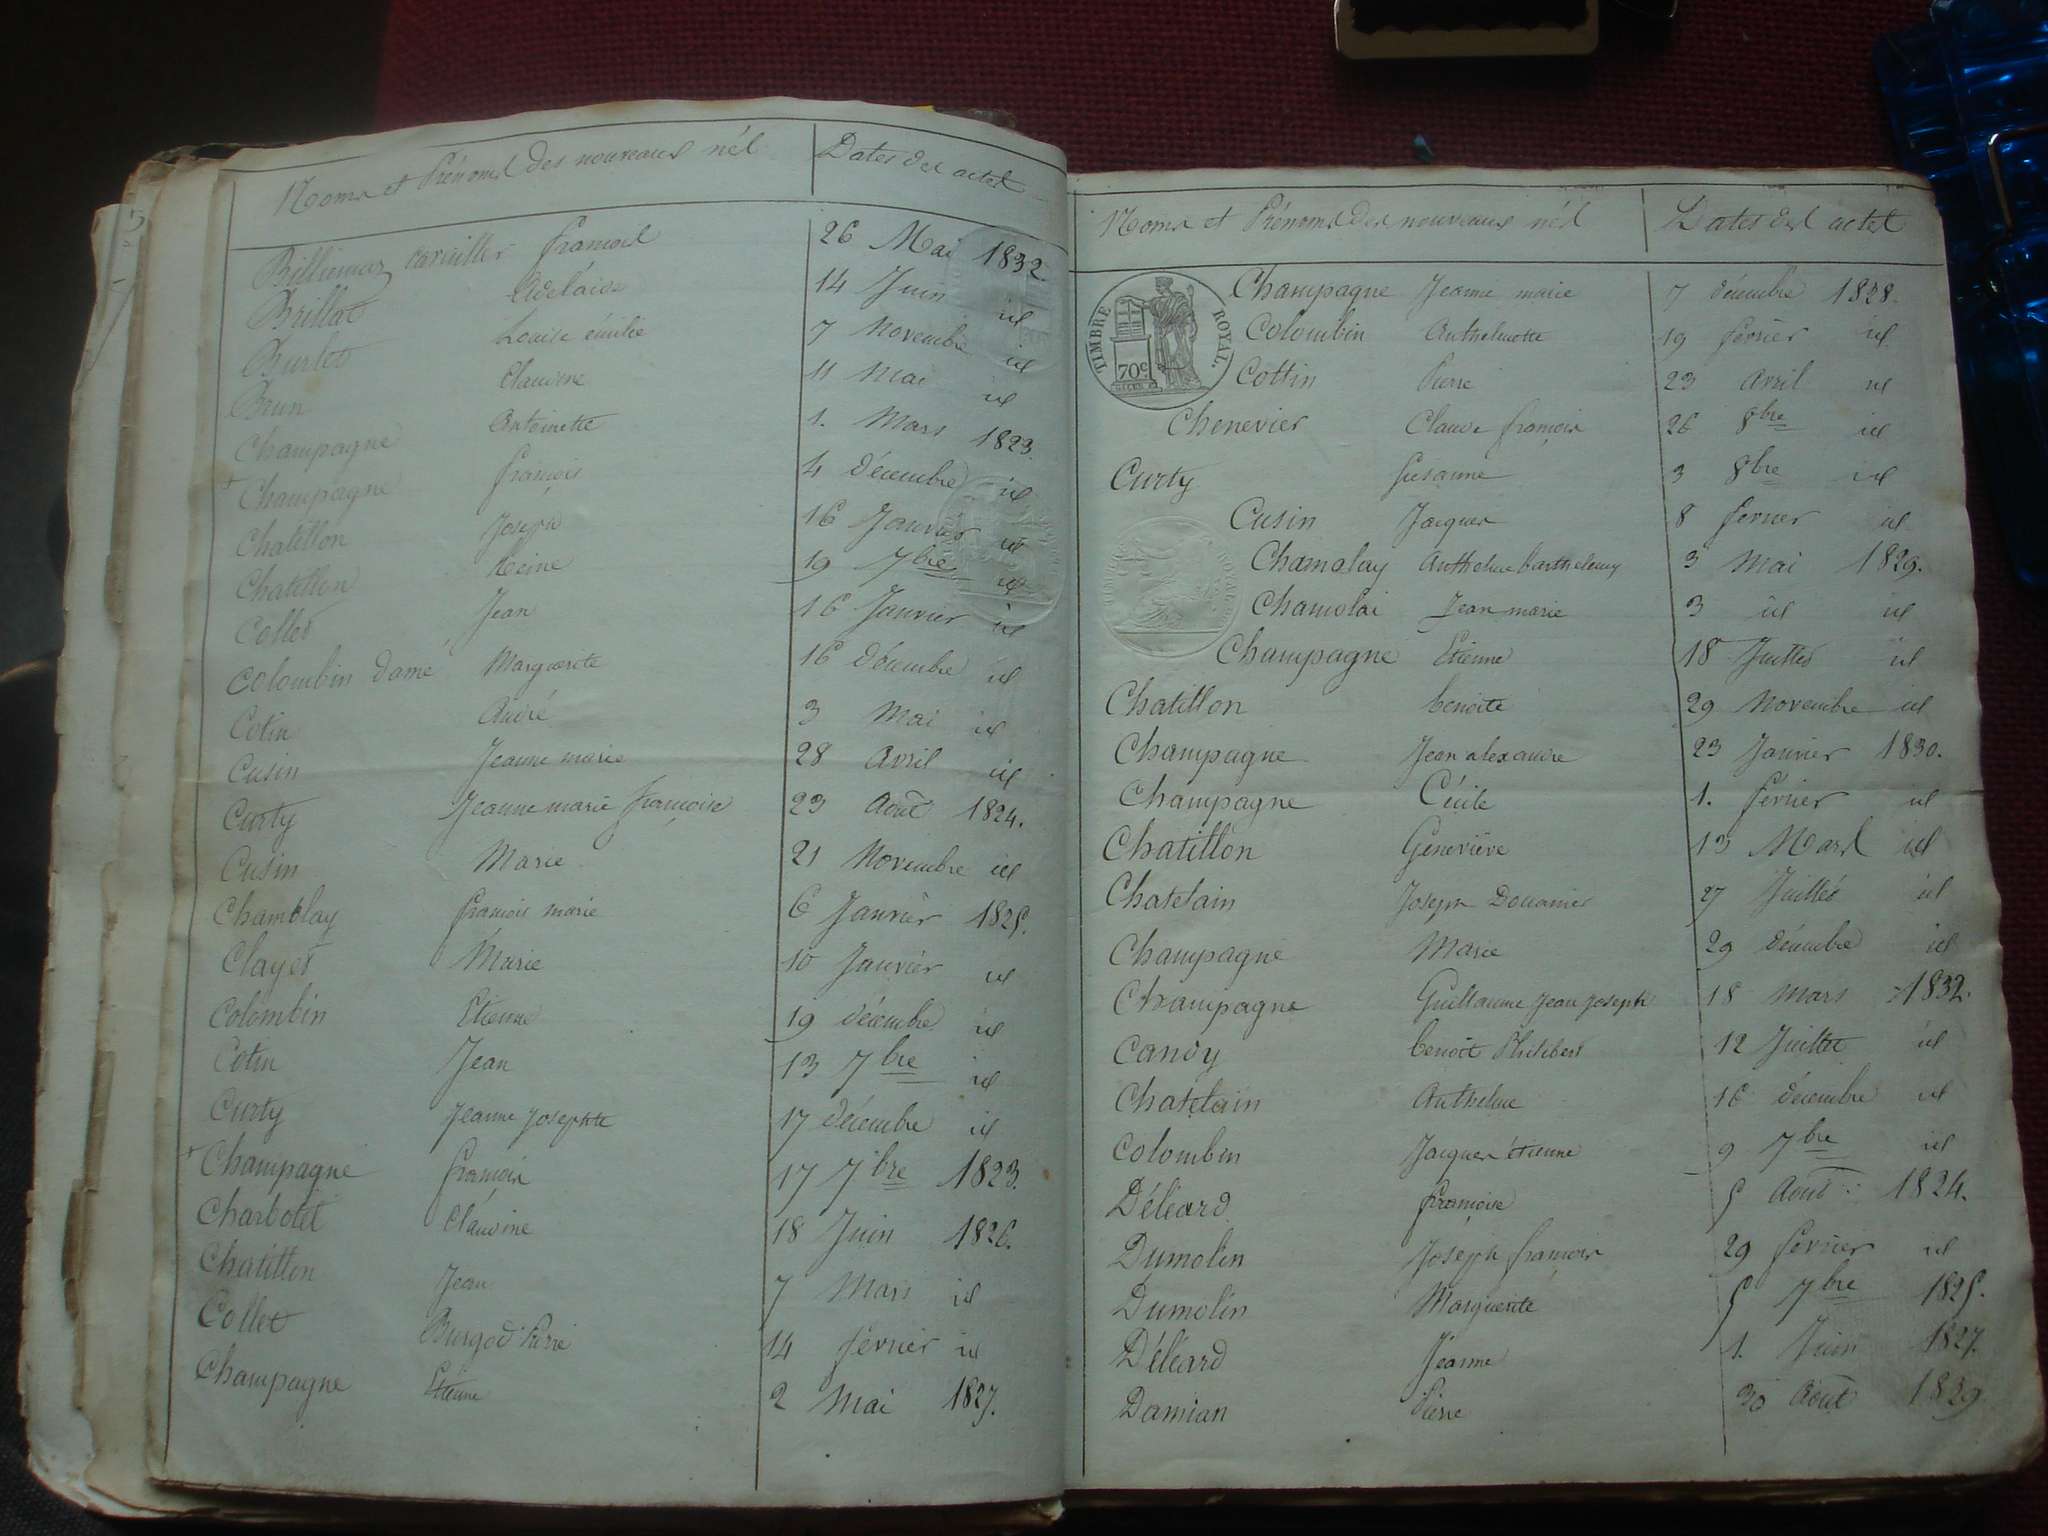 Noms et Prénoms des nouveaux nés Dates des actes
Billiemaz cavuiller françois 26 Mai 1832
Brillat Adélaïde 14 Juin id
Burlet Louise émilie 7 Novembre id
Brun Claudine 11 Mai id
Champagne Antoinette 1. Mars 1823.
+ Champagne françois 4 décembre id
Chatillon Joseph 16 Janvier id
Chatillon Reine 19 7bre id
Collet Jean 16 Janvier id
Colombin damé Marguerite 16 décembre id
Cotin André 3 Mai id
Cusin Jeanne marie 28 Avril id
Curty Jeanne marie françoise 23 Août 1824.
Cusin Marie 21 Novembre id
Chamblay françois marie 6 Janvier 1825.
Clayet Marie 10 Janvier id
Colombin Etienne 19 décembre id
Cotin Jean 13 7bre id
Curty Jeanne Josephte 17 décembre id
+ Champagne françois 17 7bre 1823.
Charbotel Claudine 18 Juin 1826.
Chatillon Jean 7 Mars id
Collet Burgod Pierre 14 février id
Champagne Etienne 2 Mai 1827.
Noms et Prénoms des nouveaux nés Dates des actes
TIMBRE ROYAL.
70c
Champagne Jeanne marie 7 décembre 1828.
Colombin Anthelmette 19 février id
Cottin Pierre 23 Avril id
Chenevier Claude françois 26 8bre id
Curty Susanne 3 8bre id
Cusin Jacques 8 fevrier id
Chamolay Anthelme barthelemy 3 Mai 1829.
Chamolai Jean marie 3 id id
Champagne Etienne 18 Juillet id
Chatillon benoite 29 Novembre id
Champagne Jean alexandre 23 Janvier 1830.
Champagne Cécile 1. février id
Chatillon Geneviève 13 Mars id
Chatelain Joseph Douanier 27 Juillet id
Champagne Marie 29 décembre id
Champagne Guillaume Jean Joseph 18 Mars 1832.
Candy benoît Philibert 12 Juillet id
Chatelain Anthelme 16 décembre id
Colombin Jacques étienne 9 7bre id
Déléard françoise 5 Août 1824.
Dumolin Joseph françois 29 février id
Dumolin Marguerite 5 7bre 1825.
Déléard Jeanne 1. Juin 1827.
Damian Pierre 30 Août 1829